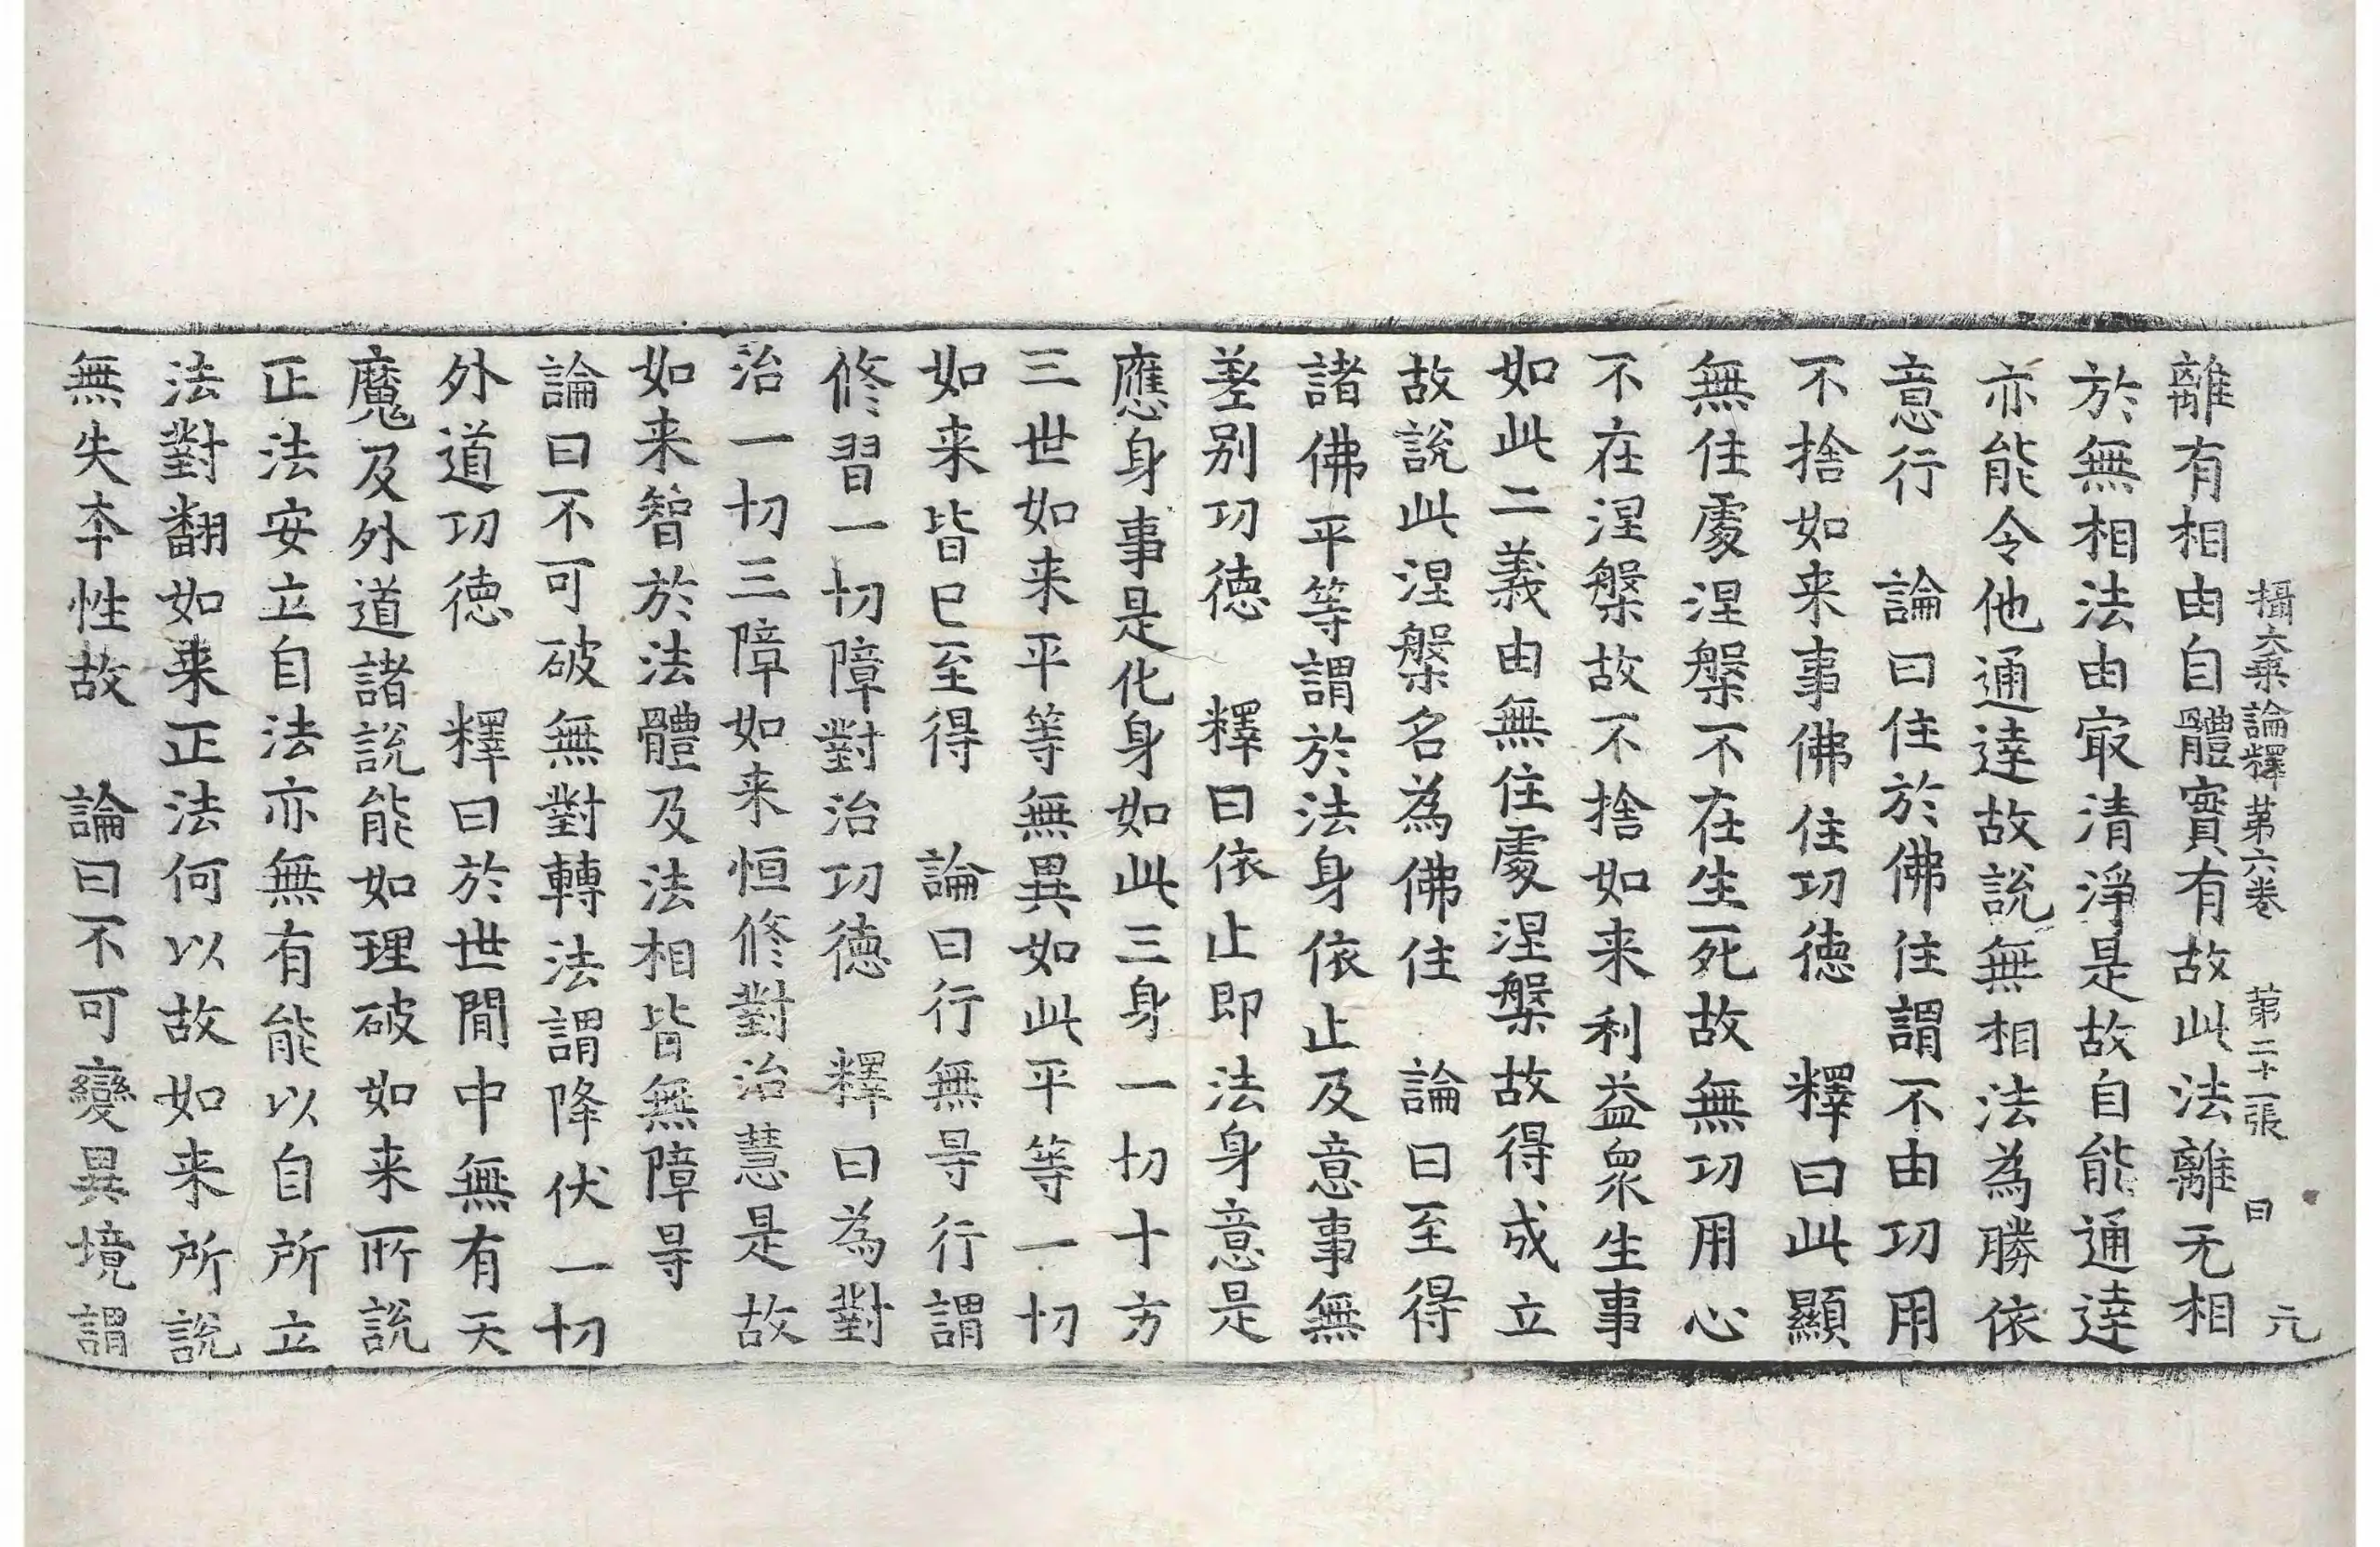 攝大乘論釋第六卷 第二十一張 曰 元
離有相由自體實有故此法離无相
於無相法由㝡清淨是故自能通達
亦能令他通達故説無相法為勝依
意行 論曰住於佛住謂不由功用
不捨如来事佛住功德 釋曰此顯
無住處涅槃不在生死故無功用心
不在涅槃故不捨如来利益衆生事
如此二義由無住處涅槃故得成立
故説此涅槃名為佛住 論曰至得
諸佛平等謂於法身依止及意事無
差别功德 釋曰依止即法身意是
應身事是化身如此三身一切十方
三世如来平等無異如此平等一切
如来皆已至得 論曰行無㝵行謂
修習一切障對治功德 釋曰為對
治一切三障如来恒修對治慧是故
如来智於法體及法相皆無障㝵
論曰不可破無對轉法謂降伏一切
外道功德 釋曰於世間中無有天
魔及外道諸説能如理破如来所説
正法安立自法亦無有能以自所立
法對翻如来正法何以故如来所説
無失夲性故 論曰不可變異境謂